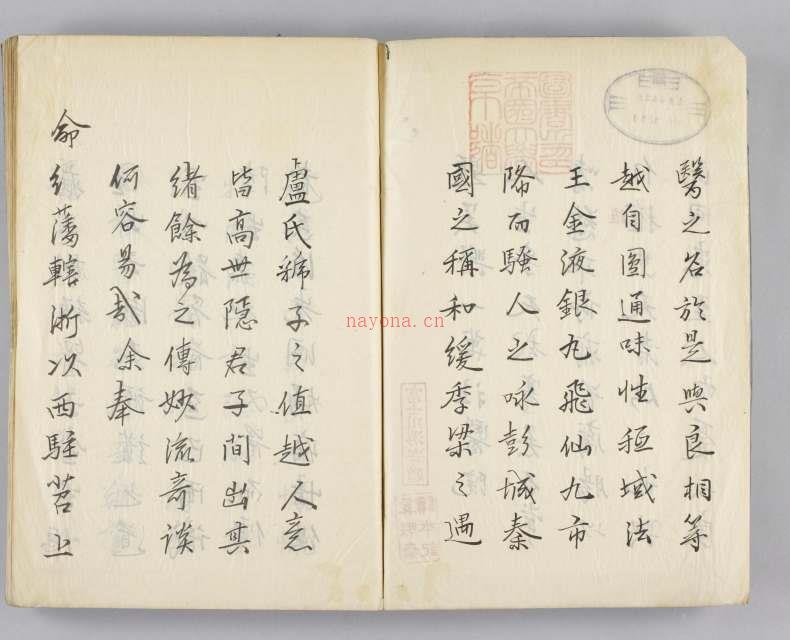 醫之名於是與良相等
越自圓通味性種域法
王金液銀丸飛仙九市
降而騷人之咏彭城秦
國之稱和緩季梁之遇
盧氏虢子之值越人意
皆高世隱君子間出其
緒餘為之傳妙流奇談
何容易哉余奉
命行藩轄浙以西駐苕上
nayona.cn